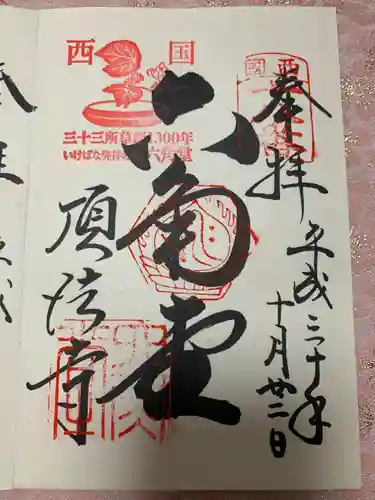 奉拝
平成三十年
十月廿二日
六角堂
頂法寺
西国
三十三所草創1300年
いけばな発祥の地 六角堂
西国